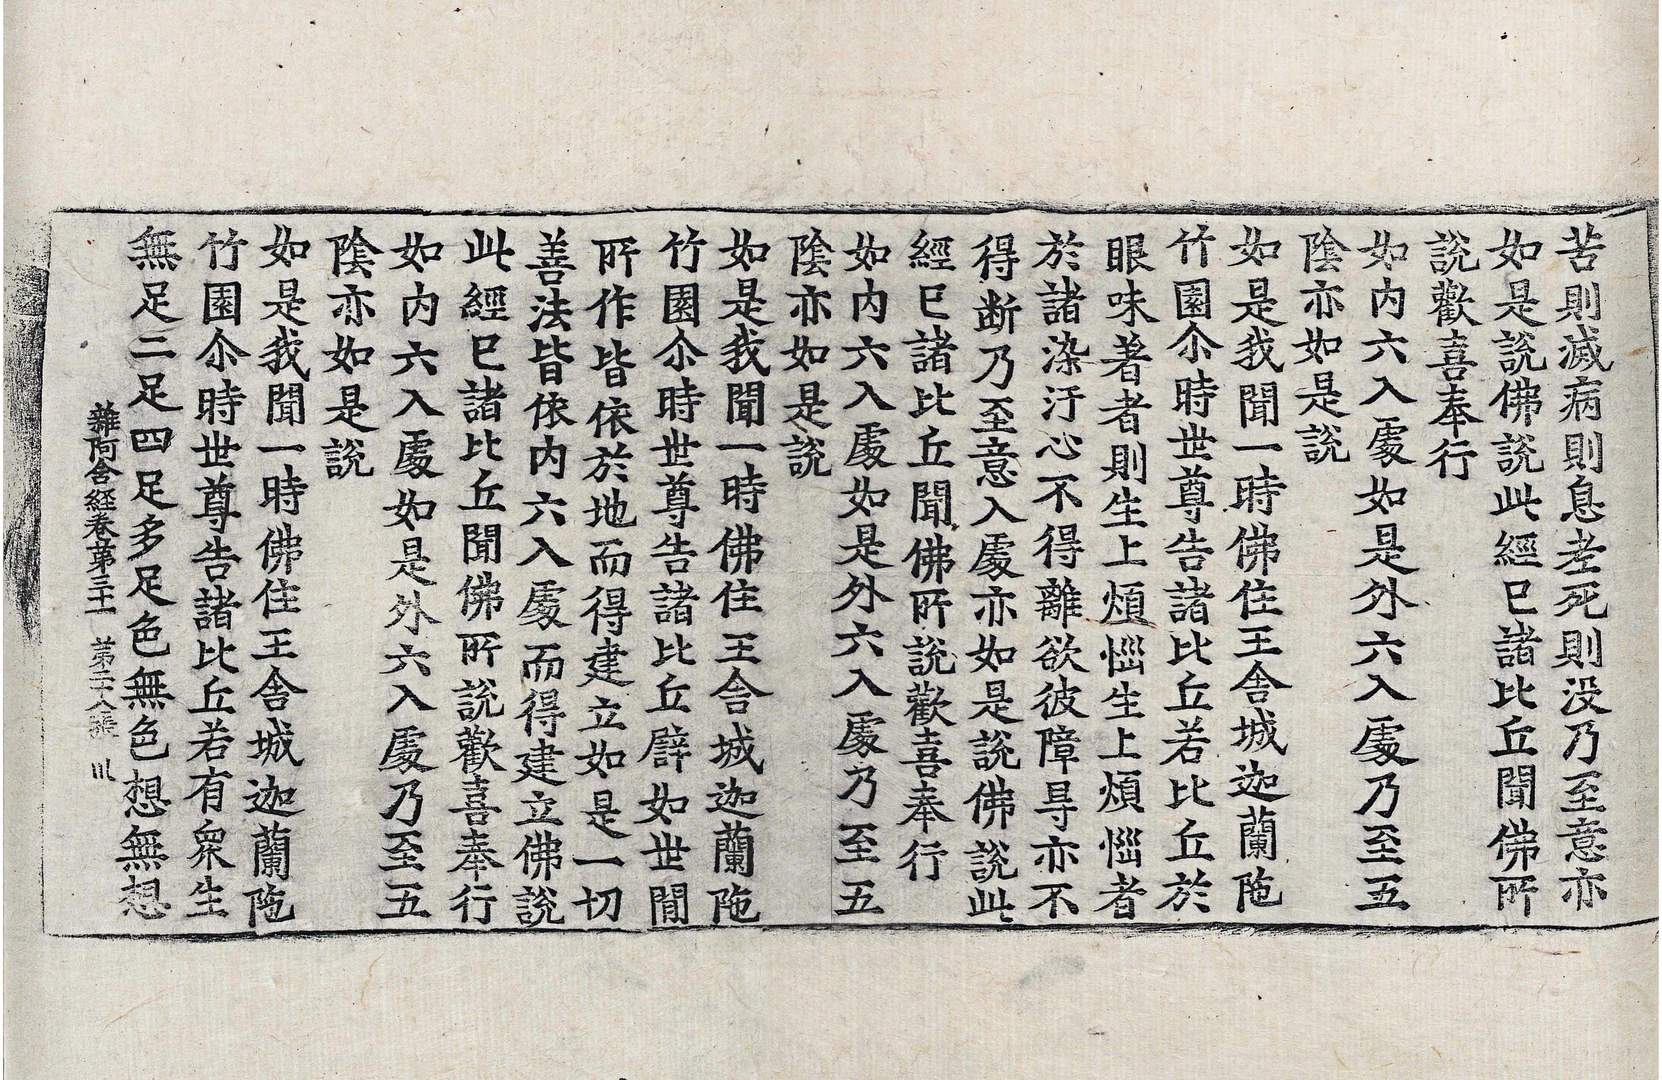 苦則滅病則息老死則没乃至意亦
如是說佛說此經已諸比丘聞佛所
說歡喜奉行
如内六入處如是外六入處乃至五
陰亦如是說
如是我聞一時佛住王舍城迦蘭陁
竹園尒時世尊告諸比丘若比丘於
眼味著者則生上煩惱生上煩惱者
於諸染汙心不得離欲彼障㝵亦不
得断乃至意入處亦如是說佛說此
經已諸比丘聞佛所說歡喜奉行
如内六入處如是外六入處乃至五
陰亦如是說
如是我聞一時佛住王舍城迦蘭陁
竹園尒時世尊告諸比丘譬如世間
所作皆依於地而得建立如是一切
善法皆依内六入處而得建立佛說
此經已諸比丘聞佛所說歡喜奉行
如内六入處如是外六入處乃至五
陰亦如是說
如是我聞一時佛住王舍城迦蘭陁
竹園尒時世尊告諸比丘若有衆生
無足二足四足多足色無色想無想
雜阿含經卷第三十一 第二十八張 川